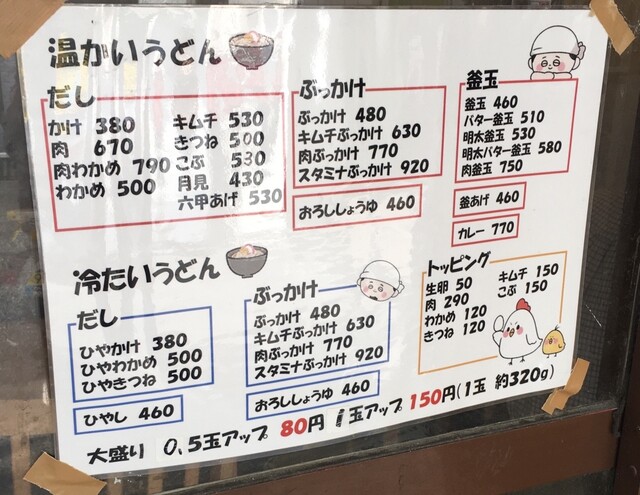 温かいうどん
だし
かけ 380
肉 670
肉わかめ 790
わかめ 500
キムチ 530
きつね 500
こぶ 530
月見 430
六甲あげ 530
ぶっかけ
ぶっかけ 480
キムチぶっかけ 630
肉ぶっかけ 770
スタミナぶっかけ 920
おろししょうゆ 460
釜玉
釜玉 460
バター釜玉 510
明太釜玉 530
明太バター釜玉 580
肉釜玉 750
釜あげ 460
カレー 770
冷たいうどん
だし
ひやかけ 380
ひやわかめ 500
ひやきつね 500
ひやし 460
ぶっかけ
ぶっかけ 480
キムチぶっかけ 630
肉ぶっかけ 770
スタミナぶっかけ 920
おろししょうゆ 460
トッピング
生卵 50
肉 290
わかめ 120
きつね 120
キムチ 150
こぶ 150
大盛り 0.5玉アップ 80円 1玉アップ 150円(1玉 約320g)